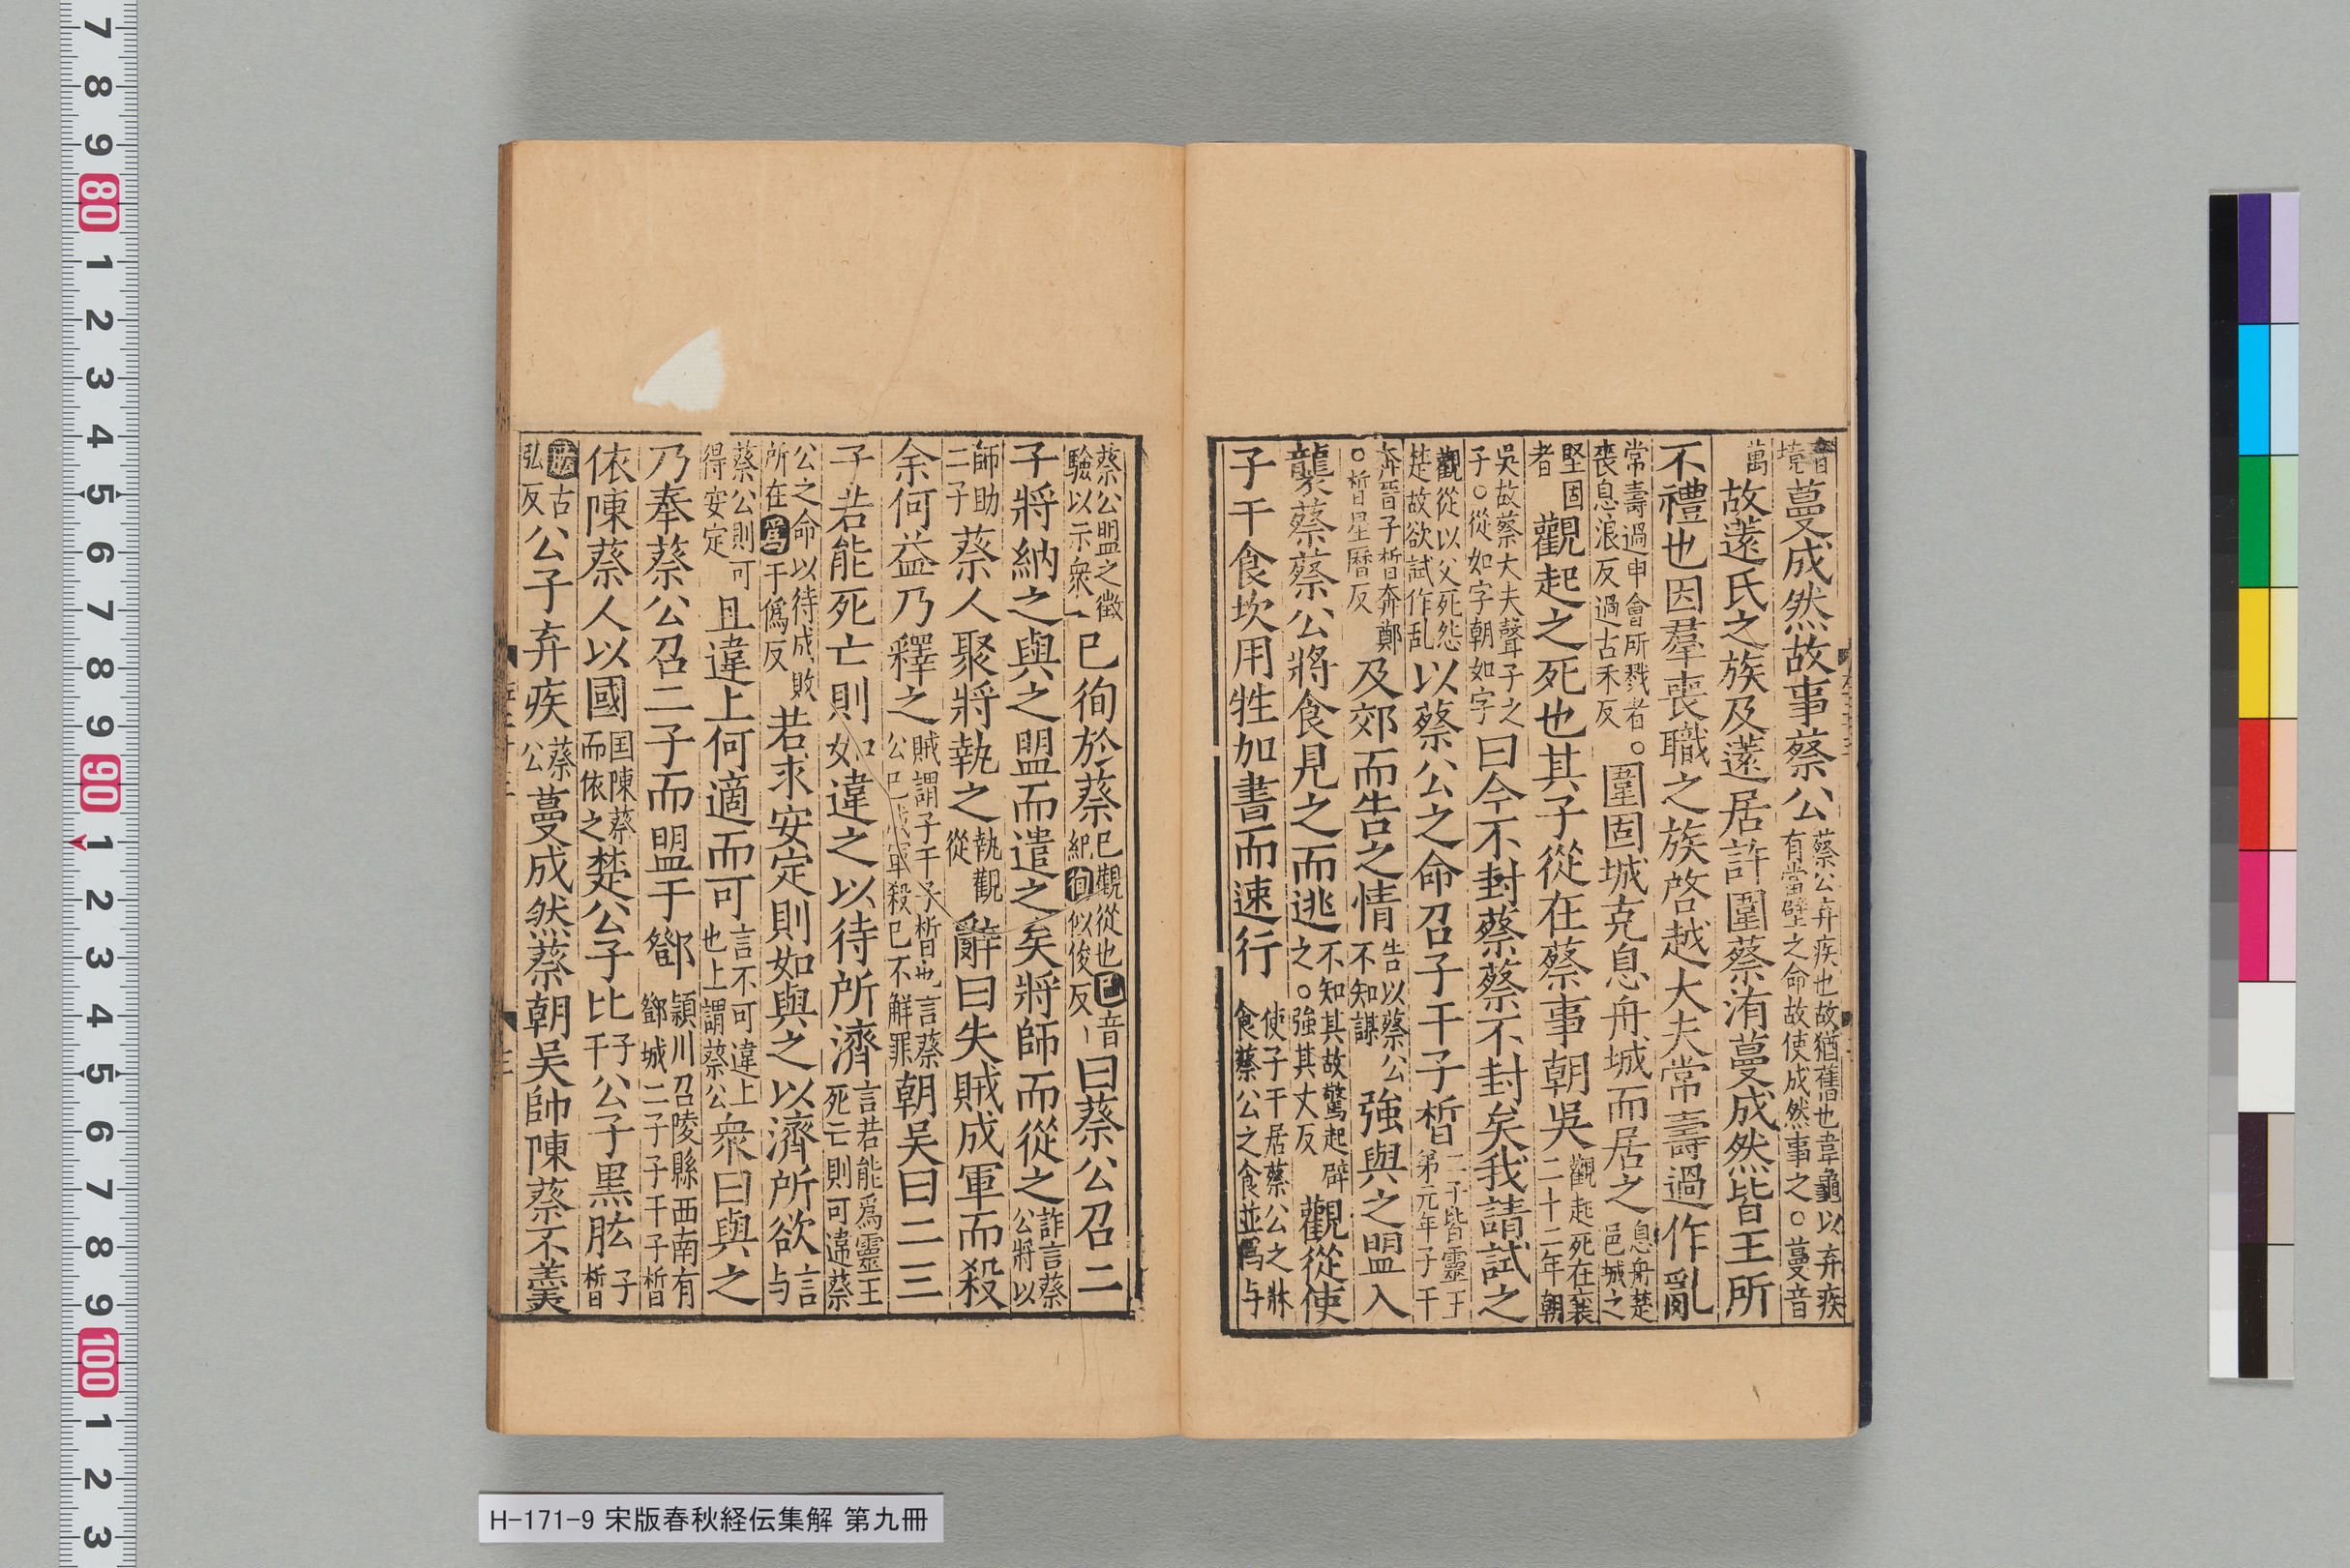 蔓成然故事蔡公蔡公弃疾也故猶舊也韋龜以弃疾有當璧之命故使成然事之。蔓音
萬故薳氏之族及薳居許圍蔡洧蔓成然皆王所
不禮也因羣喪職之族啓越大夫常壽過作亂
常壽過申會所戮者。喪息浪反過古禾反圍固城克息舟城而居之息舟楚邑城之
堅固者觀起之死也其子從在蔡事朝吳觀起死在襄二十二年朝
吳故蔡大夫聲子之子。從如字朝如字曰今不封蔡蔡不封矣我請試之
觀從以父死怨楚故欲試作乱以蔡公之命召子干子晳二子皆靈王第元年子干
奔晉子晳奔鄭。晳星曆反及郊而告之情告以蔡公不知謀強與之盟入
襲蔡蔡公將食見之而逃不知其故驚起辟之。強其丈反觀從使
子干食坎用牲加書而速行使子干居蔡公之牀食蔡公之食並爲与
蔡公盟之徵驗以示衆已徇於蔡已觀從也已音紀徇似俊反曰蔡公召二
子將納之與之盟而遣之矣將師而從之詐言蔡公將以
師助二子蔡人聚將執之執觀從辭曰失賊成軍而殺
余何益乃釋之賊謂子干子晳也言蔡公已成軍殺已不解罪朝吳曰二三
子若能死亡則如違之以待所濟言若能爲靈王死亡則可違蔡
公之命以待成敗所在爲于僞反若求安定則如與之以濟所欲言与
蔡公則可得安定且違上何適而可言不可違上也上謂蔡公衆曰與之
乃奉蔡公召二子而盟于鄧潁川召陵縣西南有鄧城二子子干子晳
依陳蔡人以國国陳蔡而依之楚公子比子干公子黑肱子晳
肱古弘反公子弃疾蔡公蔓成然蔡朝吳帥陳蔡不羹
H-171-9 宋版春秋経伝集解 第九冊
7 8 9 80 1 2 3 4 5 6 7 8 9 90 1 2 3 4 5 6 7 8 9 100 1 2 3